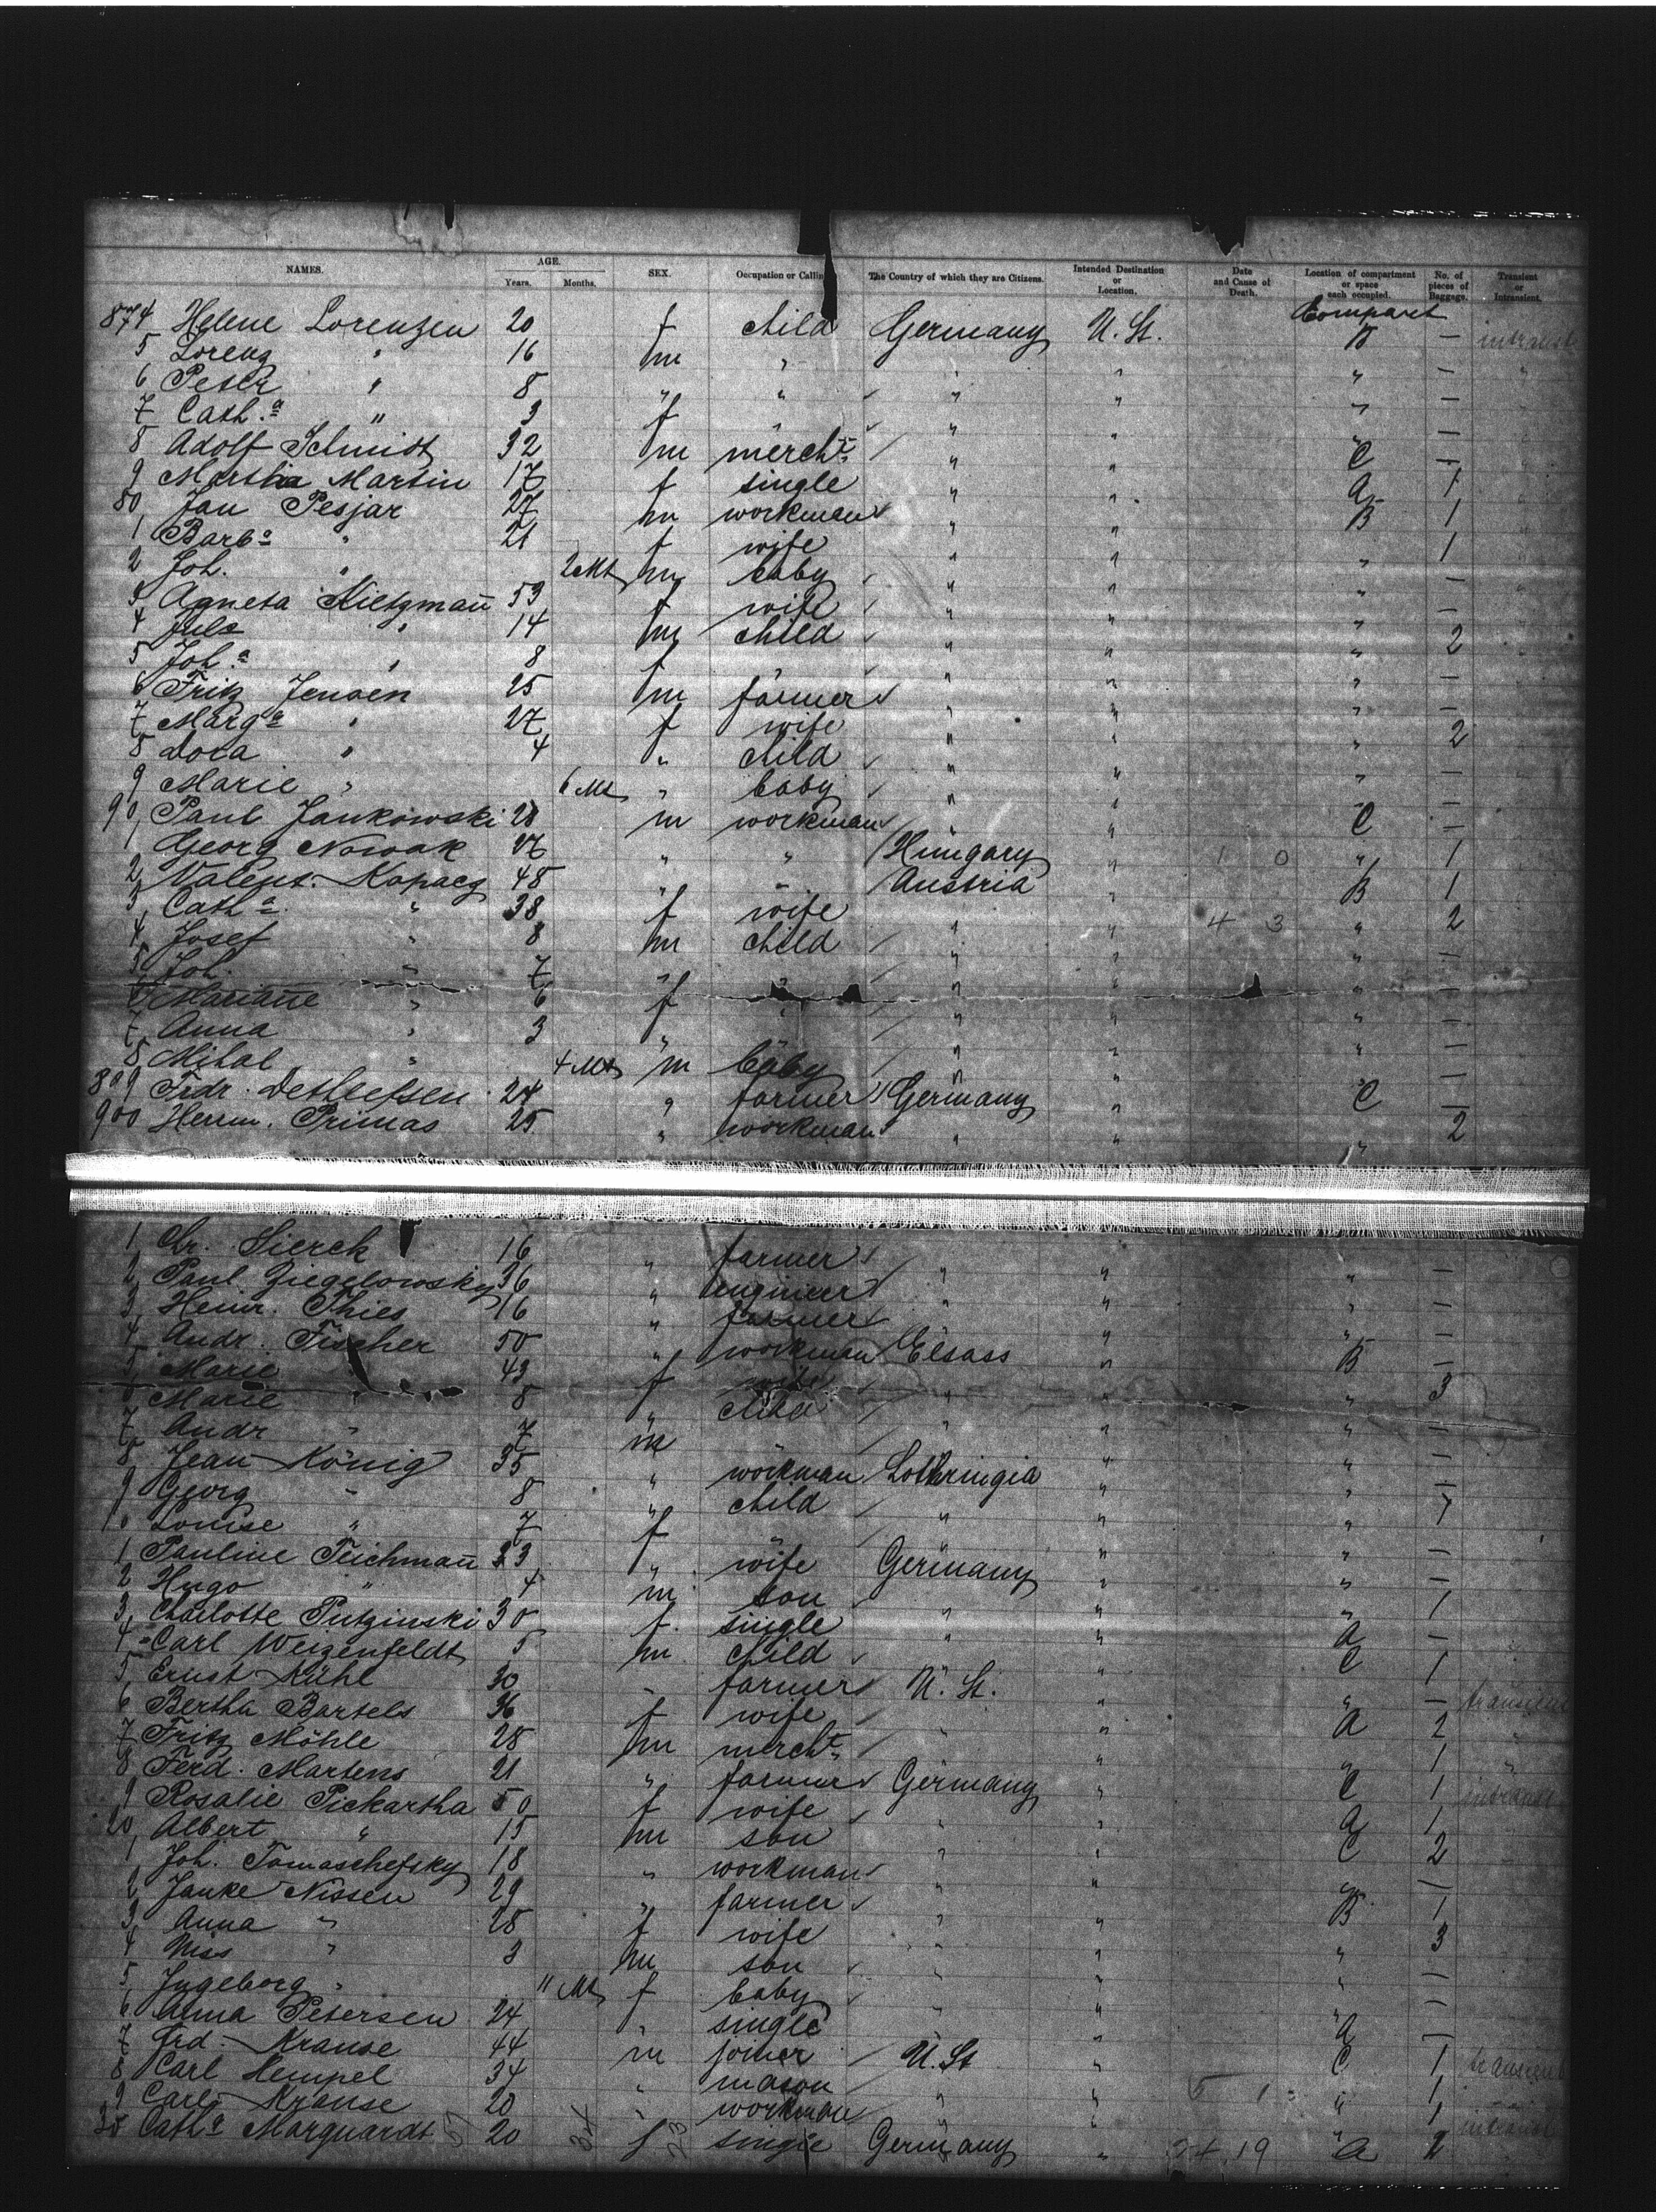 NAMES. AGE. Years. Months. SEX. Occupation or Calling The Country of which they are Citizens. Intended Destination or Location. Date and Cause of Death. Location of compartment or space each occupied. No. of pieces of Baggage. Transient or Intransient.
Compart
874 Helene Lorenzen 20 f child Germany U. St. B —
5 Lorenz " 16 m " " " " —
6 Peter " 8 " " " " " —
7 Cath.a " 3 f " " " " —
8 Adolf Schmidt 32 m mercht. " " C —
9 Martha Martin 17 f single " " A 1
80 Jan Pesjar 27 m workman " " B 1
1 Barba " 21 f wife " " " 1
2 Joh. " 2 Mt m baby " " " —
3 Agneta Kietzman̄ 53 f wife " " " —
4 Juls " 14 m child " " " 2
5 Joh.a " 8 f " " " " —
6 Fritz Jensen 25 m farmer " " " —
7 Marga " 27 f wife " " " 2
8 Dora " 4 " child " " " —
9 Marie " 6 Mt " baby " " " —
90 Paul Jankowski 28 m workman " " C —
1 Georg Nowak 26 " " Hungary " " 1
2 Valent. Kopacz 48 " " Austria " B 1
3 Catha " 38 f wife " " " 2
4 Josef " 8 m child " " " —
5 Joh. " 7 " " " " " —
6 Marian̄e " 6 f " " " " —
7 Anna " 3 " " " " " —
8 Mihal " 4 Mt m baby " " " —
899 Frdr. Detleefsen 24 " farmer Germany " C —
900 Herm. Primas 25 " workman " " " 2
1 Chr. Sierck 16 " farmer " " " —
2 Paul Ziegelowsky 36 " engineer " " " —
3 Heinr. Thies 16 " farmer " " " —
4 Andr. Fischer 50 " workman Elsass " B —
5 Marie 43 f wife " " " 3
6 Marie 8 " child " " " —
7 Andr " 7 m " " " " —
8 Jean König 35 " workman Lothringia " " —
9 Georg " 8 " child " " " 1
10 Louise " 7 f " " " " —
1 Pauline Teichman̄ 33 " wife Germany " " —
2 Hugo " 4 m son " " " 1
3 Charlotte Putzinski 30 f. single " " A —
4 Carl Weizenfeldt 5 m child " " C 1
5 Ernst Kühl 30 " farmer U. St. " " — transient
6 Bertha Bartels 36 f wife " " A 2 "
7 Fritz Möhle 28 m mercht. " " " 1 "
8 Ferd. Martens 21 " farmer Germany " C 1
9 Rosalie Pickartha 50 f wife " " A 1
20 Albert " 15 m son " " C 2
1 Joh. Tomaschefsky 18 " workman " " " —
2 Janke Nissen 29 " farmer " " B 1
3 Anna " 28 f wife " " " 3
4 Niss " 3 m son " " " —
5 Ingeborg " 11 Mt f baby " " " —
6 Anna Petersen 24 " single " " A —
7 Frd. Krause 44 m joiner U. St " C 1 transient
8 Carl Hempel 34 " mason " " " 1
9 Carl Krause 20 " workman " " " 1
30 Catha Marquardt 20 f single Germany " A 2